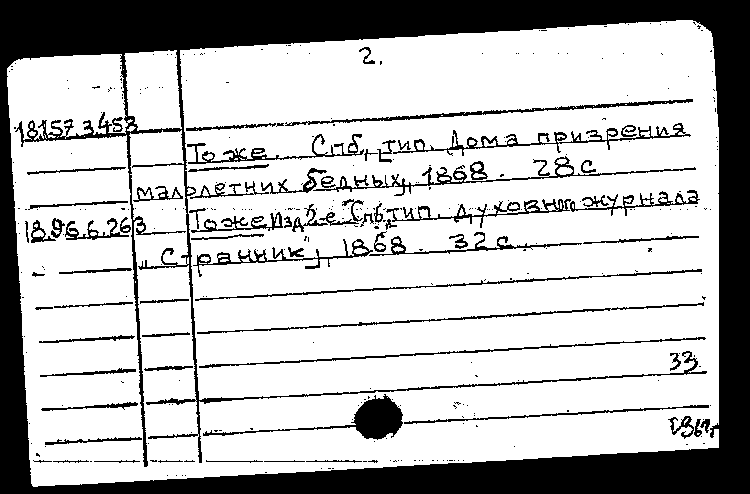 2.
18.157.3.453
То же. Спб, [тип. Дома призрения
малолетних бедных], 1868. 28 с
18.96.6.263 То же Изд 2-е. Спб, тип. духовного журнала
„Странник"], 1868. 32 с.
33